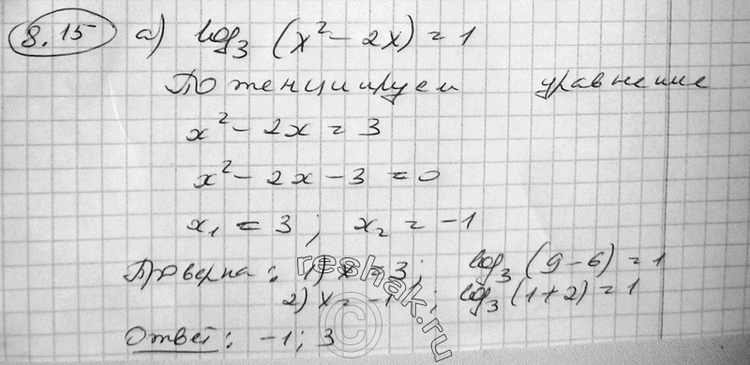 8.15 а) log₃ (x² - 2x) = 1
Потенциируем уравнение
x² - 2x = 3
x² - 2x - 3 = 0
x₁ = 3 ; x₂ = -1
Проверка: 1) x = 3 ; log₃ (9 - 6) = 1
2) x = -1 ; log₃ (1 + 2) = 1
Ответ: -1; 3
reshak.ru
©